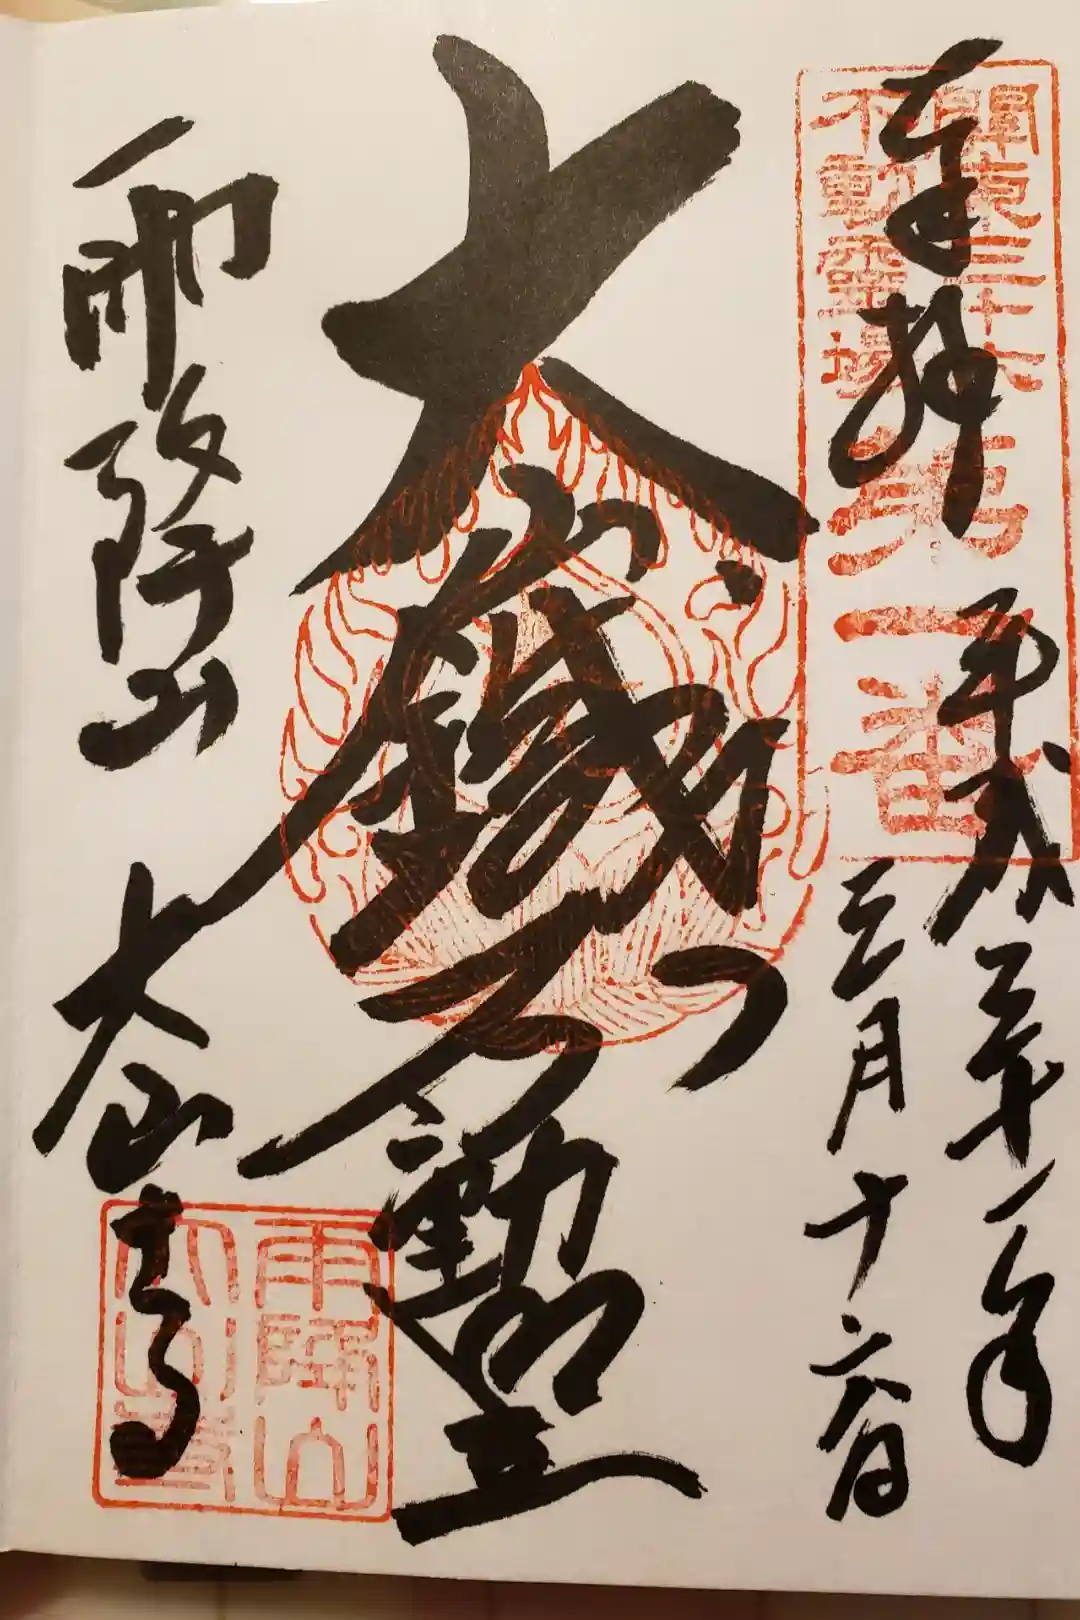 奉拝
平成三十一年
三月十六日
關東三十六
不動霊場
第一番
大山鐵不動明王
雨降山
大山寺
雨降山
大山寺